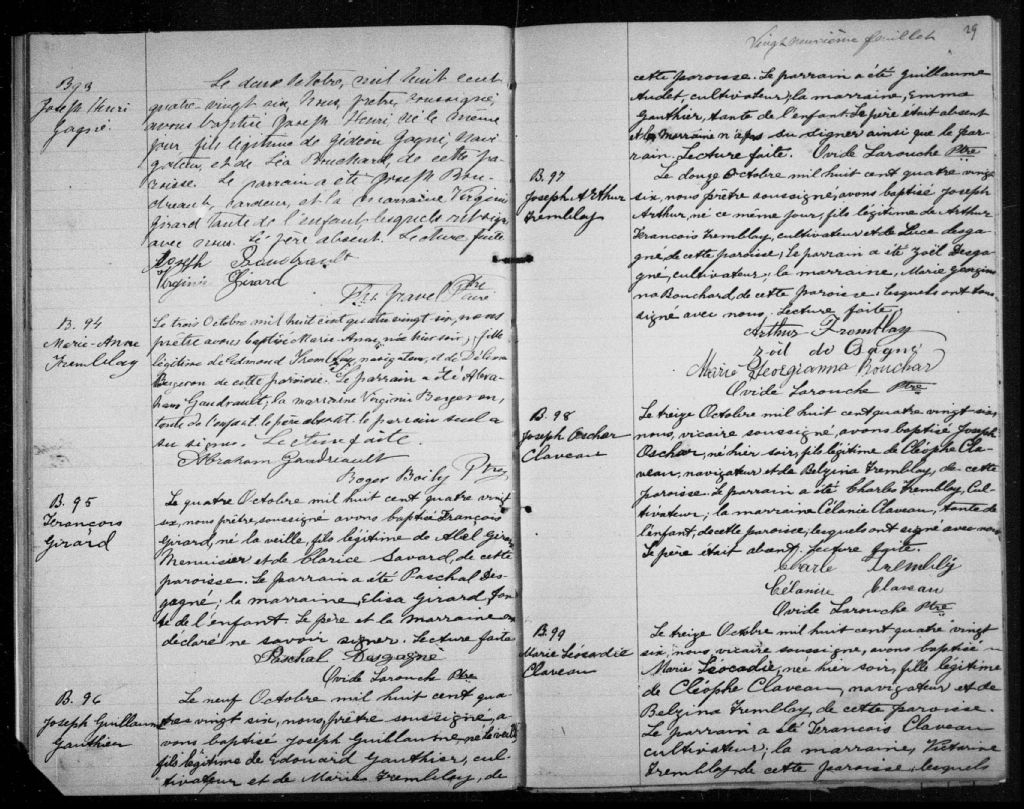 B 93
Joseph Henri
Gagné.
Le deux Octobre, mil huit cent
quatre vingt six, Nous, prêtre, soussigné,
avons baptisé Joseph Henri né le même
jour fils légitime de Gédéon Gagné, navi
gateur, et de Léa Bouchard, de cette pa
roisse. Le parrain a été Joseph Bou-
dreault, et la marraine Virginie
Girard tante de l'enfant, lesquels ont signé
avec nous. Le père absent. Lecture faite
Joseph Boudreault
Virginie Girard
Gravel Ptre
curé
B. 94
Marie-Anne
Tremblay
Le trois Octobre mil huit cent quatre vingt six, nous
prêtre avons baptisé Marie-Anne, née hier soir, fille
légitime de Edmond Tremblay, navigateur, et de
Bergeron de cette paroisse. Le parrain a été Abra-
ham Gaudreault; la marraine Virginie Bergeron,
tante de l'enfant. le père absent. le parrain seul a
su signer. Lecture faite.
Abraham Gaudriault
Roger Boily Ptre
B. 95
François
Girard
Le quatre Octobre mil huit cent quatre vingt
six, nous prêtre soussigné avons baptisé François
Girard, né la veille, fils légitime de Abel Girard
Menuisier et de Clarice Savard de cette
paroisse. Le parrain a été Paschal Des-
gagné; la marraine Elisa Girard, tan
te de l'enfant. Le père et la marraine ont
déclaré ne savoir signer. Lecture faite
Paschal Desgagné
Ovide Larouche Ptre
B. 96
Joseph Guillaume
Gauthier
Le neuf Octobre mil huit cent qua-
tres vingt six, nous, prêtre soussigné, a
vons baptisé Joseph Guillaume, né la veille
fils légitime de Edouard Gauthier, cul-
tivateur et de Marie Tremblay, de
Vingt neuvième feuillet
29
cette paroisse. Le parrain a été Guillaume
Audet, cultivateur; la marraine, Emma
Gauthier, tante de l'enfant. Le père était absent
et la Marraine n'a pas su signer ainsi que le par-
rain. Lecture faite. Ovide Larouche Ptre
B. 97
Joseph Arthur
Tremblay
Le douze Octobre mil huit cent quatre vingt
six, nous prêtre soussigné, avons baptisé Joseph
Arthur, né ce même jour, fils légitime de Arthur
François Tremblay, cultivateur et de Luce Desga-
gné, de cette paroisse; le parrain a été Zoël Desga
gné, cultivateur; la marraine, Marie Georgian
na Bouchard, de cette paroisse: lesquels ont tous
signé avec nous. Lecture faite.
Arthur Tremblay
Zoil de Gagné
Marie Georgianna Bouchar
Ovide Larouche Ptre
B. 98
Joseph Oschar
Claveau
Le treize Octobre mil huit cent quatre vingt six
nous, vicaire soussigné, avons baptisé Joseph
Oschar, né hier soir, fils légitime de Cléophe Cla-
veau, navigateur et de Belzina Tremblay, de cette
paroisse. Le parrain a été Charles Tremblay, Cul-
tivateur; la marraine Célanie Claveau, tante de
l'enfant, de cette paroisse, lesquels ont signé avec nous
Le père était absent. Lecture faite.
Charle Tremblÿ
Célanire Claveau
Ovide Larouche Ptre
B. 99
Marie Léocadie
Claveau
Le treize Octobre mil huit cent quatre vingt
six, nous, vicaire soussigné, avons baptisé
Marie Léocadie, née hier soir, fille légitime
de Cléophe Claveau, navigateur et de
Belzina Tremblay, de cette paroisse.
Le parrain a été François Claveau
cultivateur; la marraine, Victorine
Tremblay, de cette paroisse, lesquels